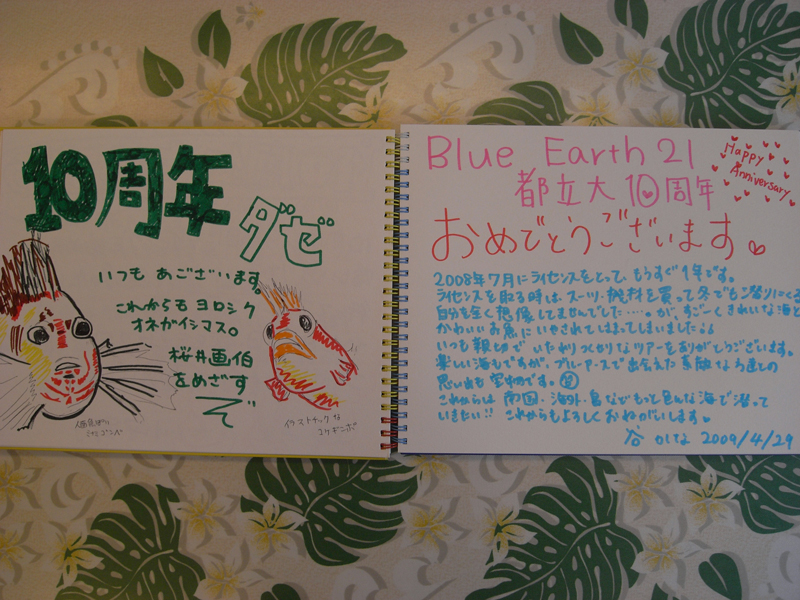 10周年
ダゼ
いつも あございます。
これからも ヨロシク
オネガイシマス。
桜井画伯
をめざす
ぞ
イラストチックな
コケギンポ
Blue Earth 21
都立大 10周年
Happy
Anniversary
おめでとうございます。
2008年7月にライセンスをとって、もうすぐ1年です。
ライセンスを取る時は、スーツ・機材を買って冬でも潜りに
自分を全く想像してませんでした……。が、すごーくきれいな海と
かわいいお魚にいやされてはまってしまいました
いつも親切で いたれりつくせりなツアーをありがとうございます。
楽しい海もですが、ブルーアースで出会えた素敵な方達との
思い出も宝物です。
これからは 南国・海外・島など もっと色んな海で潜って
いきたい!! これからもよろしくおねがいします。
谷 2009/4/29